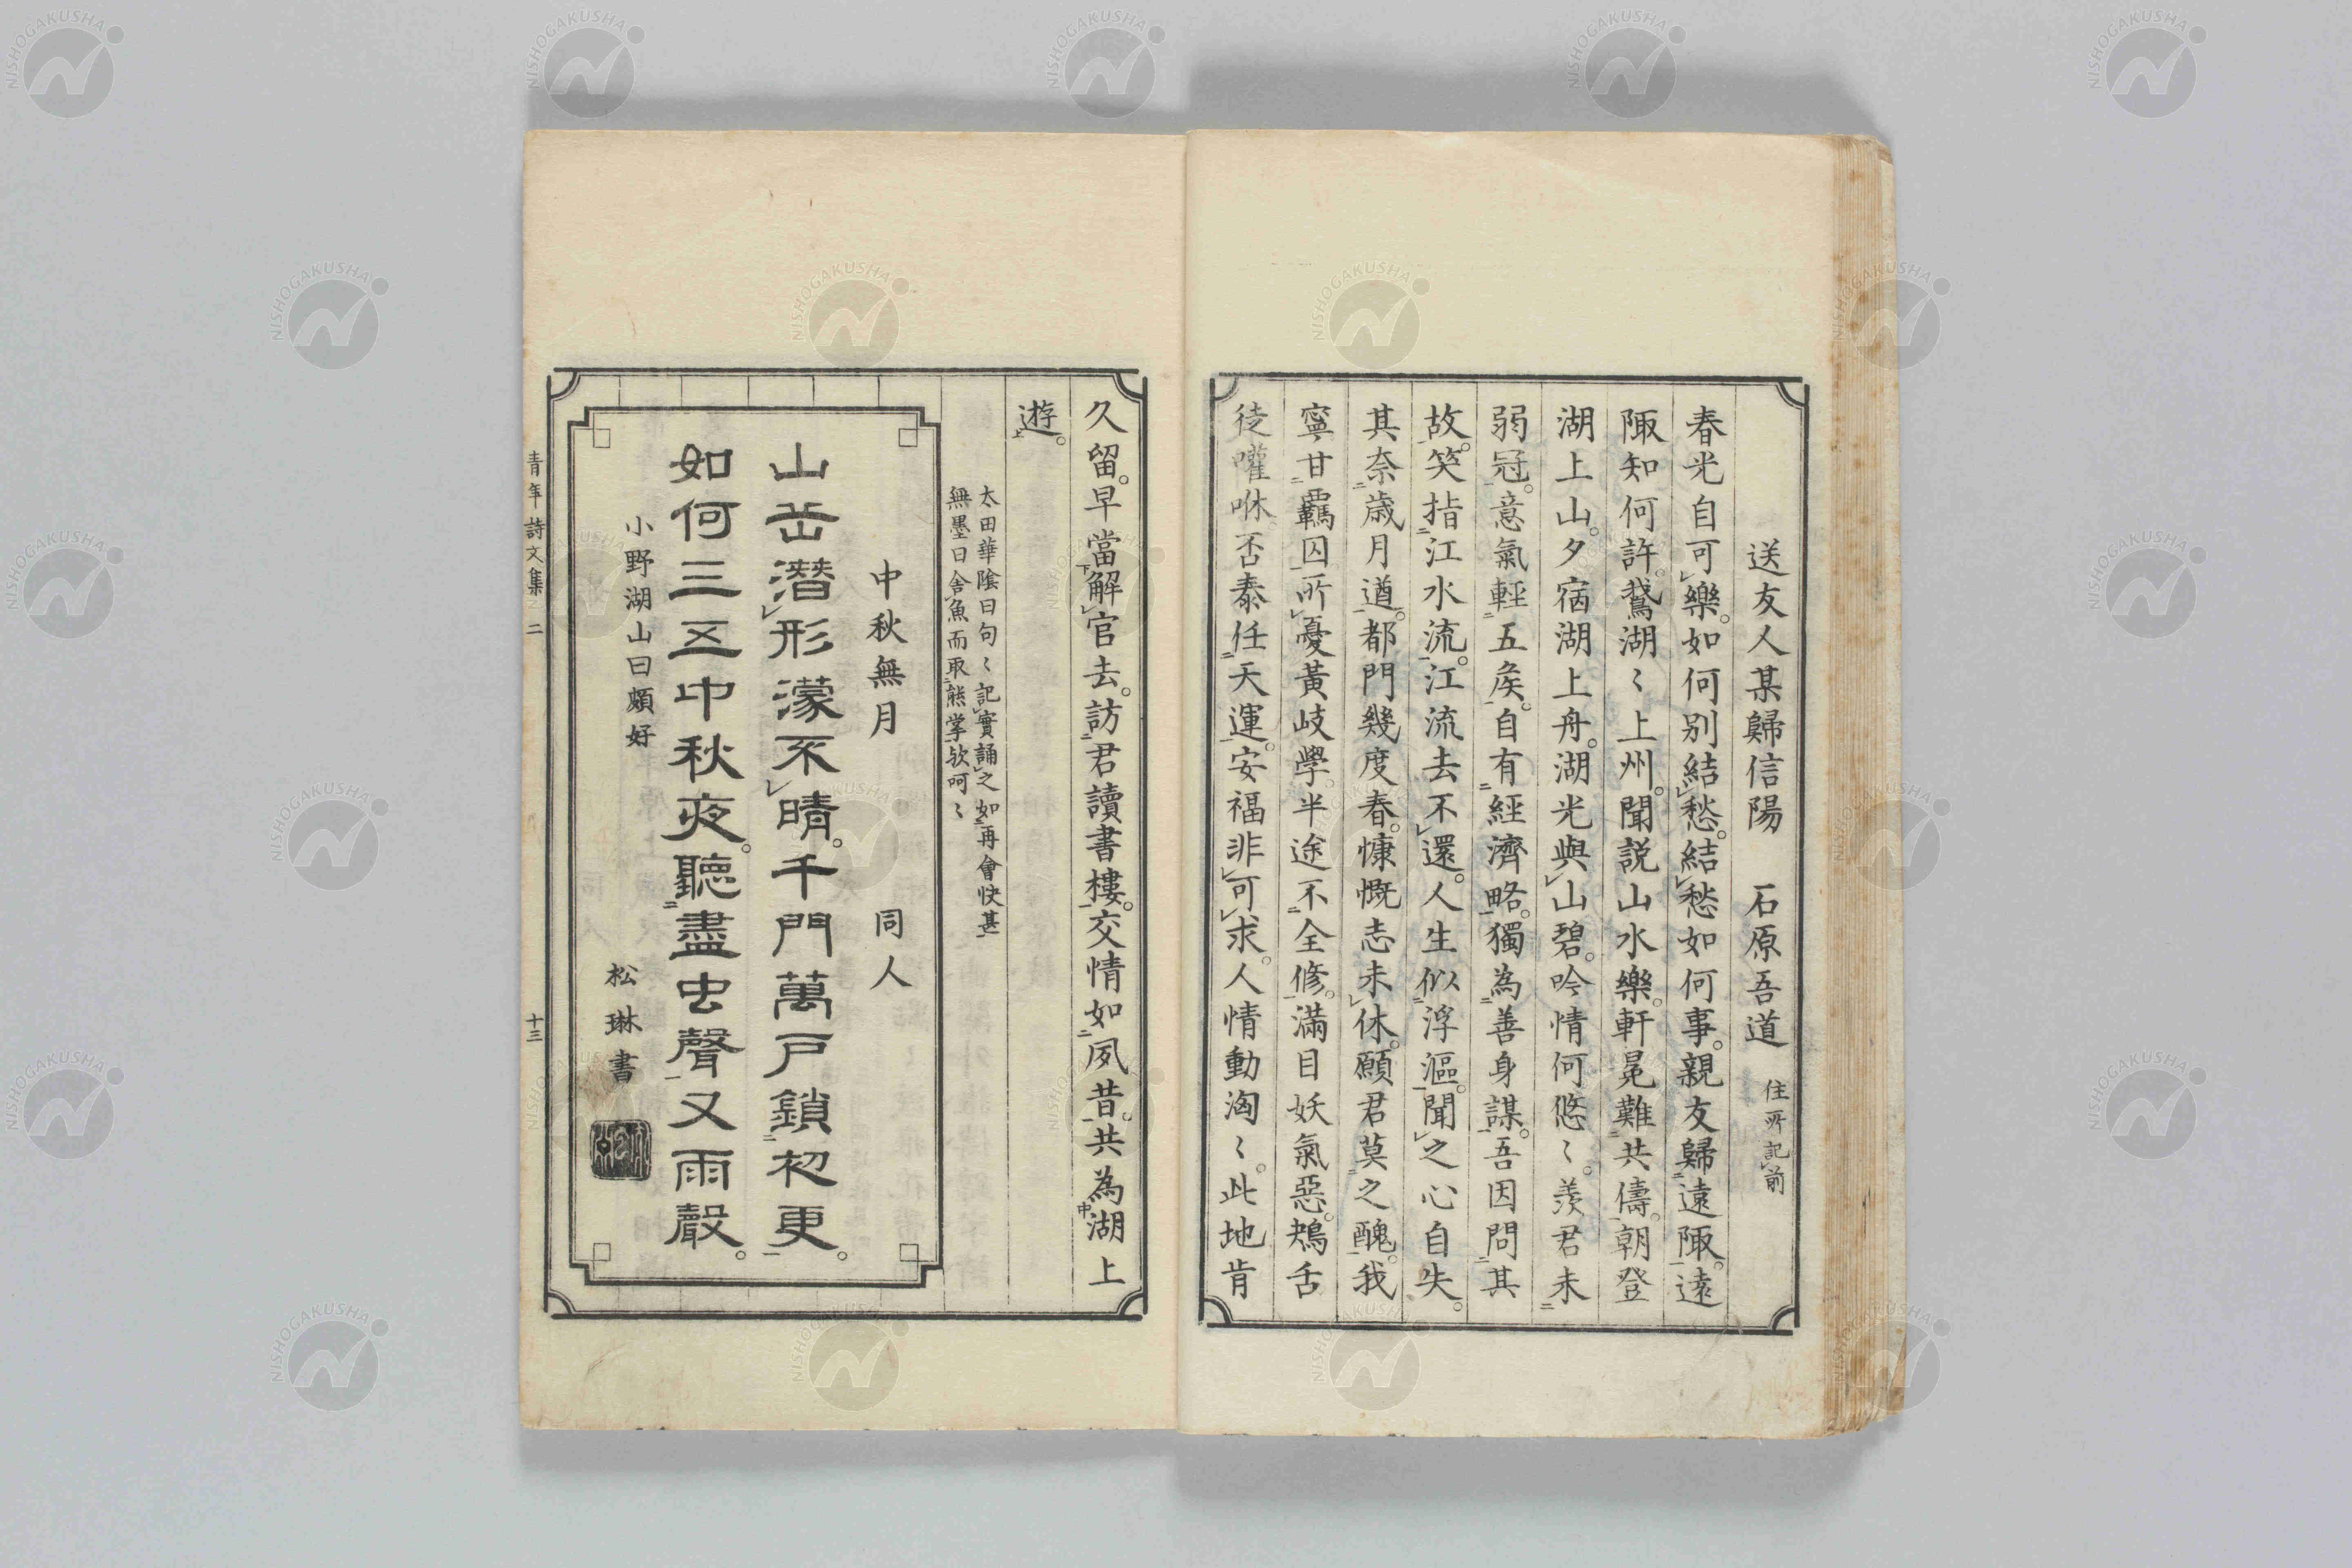 送友人某歸信陽 石原吾道 住所記前
春光自可樂。如何別結愁。結愁如何事。親友歸遠陬。遠
陬知何許。鵞湖〻上州。聞説山水樂。軒冕難共儔。朝登
湖上山。夕宿湖上舟。湖光與山碧。吟情何悠〻。羨君未
弱冠。意氣輕五矦。自有經濟略。獨為善身謀。吾因問其
故。笑指江水流。江流去不還。人生似浮漚。聞之心自失。
其奈歳月遒。都門幾度春。慷慨志未休。願君莫之醜。我
寧甘羈囚。所憂黃岐學。半途不全修。滿目妖氣惡。鴂舌
徒嚾咻。否泰任天運。安福非可求。人情動洶〻。此地肯
久留。早當解官去。訪君讀書樓。交情如夙昔。共為湖上
遊。
太田華陰曰句〻記實誦之如再會快甚
無墨曰舍魚而取熊掌欤呵〻
中秋無月 同人
山岳潛形濛不晴。千門萬戸鎖初更。
如何三五中秋夜。聽盡虫聲又雨聲。
小野湖山曰頗好
松琳書
青年詩文集二 十三
NISHOGAKUSHA